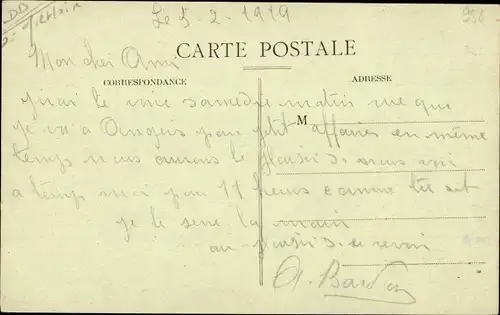 Le 5-2-1919
CARTE POSTALE
Mon cher Ami
CORRESPONDANCE
ADRESSE
j'irai te voir samedi matin vue que
M
je va a Angers pour petit affaires en même
temps nous aurons le plaisir de nous voir
a temp pour 11 heures comme tu
je te serre la main
au plaisir de te revoir
A.